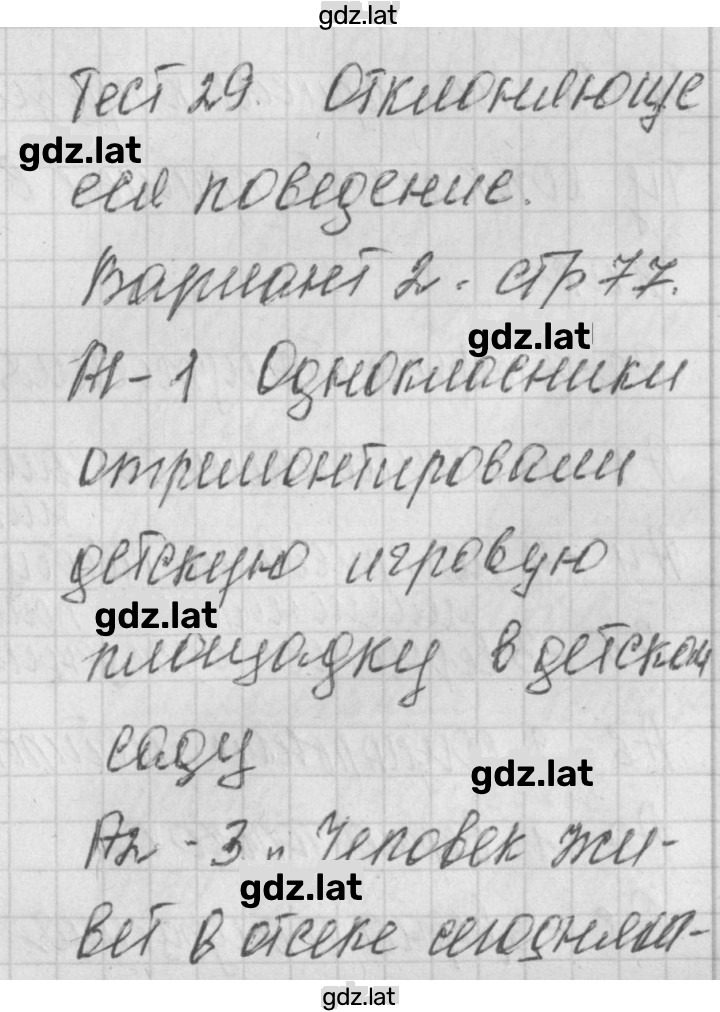 gdz.lat
Тест 29. Отклоняюще
gdz.lat
еся поведение.
Вариант 2. стр 77.
gdz.lat
А1 - 1 Однокласники
отремонтировали
детскую игровую
gdz.lat
площадку в детском
саду
gdz.lat
А2 - 3 „ Человек жи-
gdz.lat
вет в отсеке сегодняш-
gdz.lat